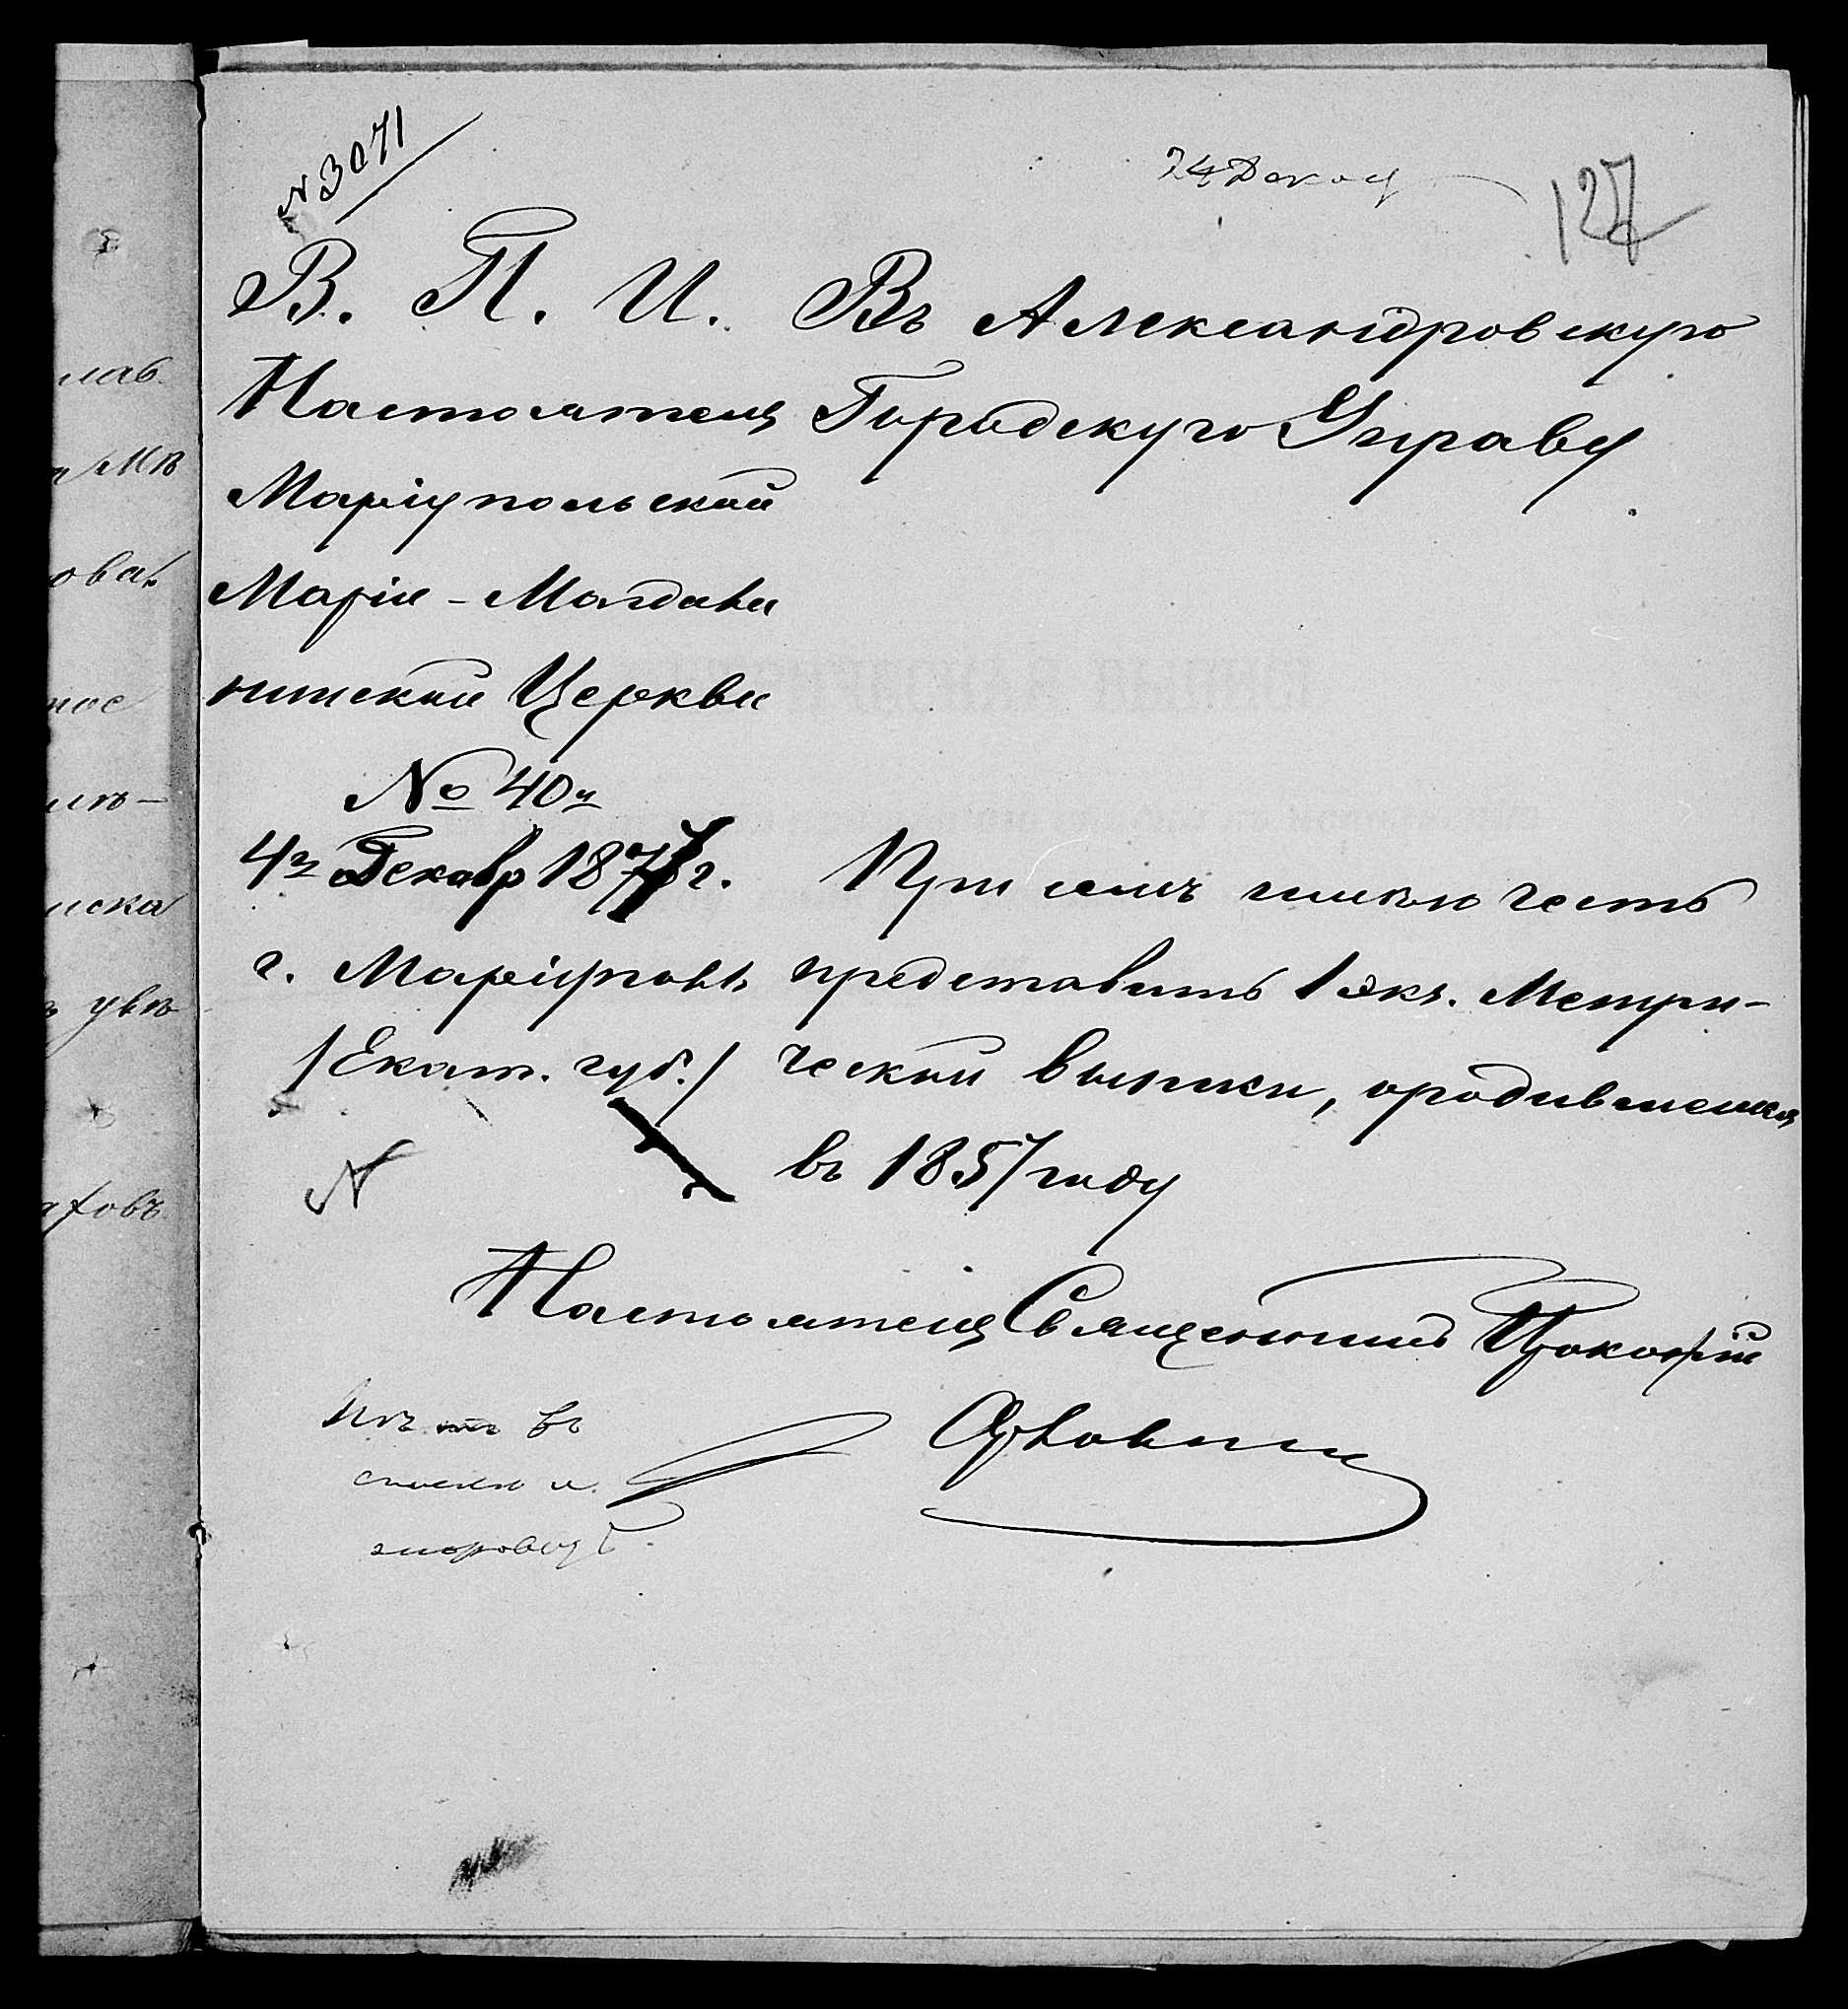 № 3071
24 Дек
127
В. П. И.
Настоятель
Маріупольской
Маріи-Магдали
нинской Церкви
№ 40й
4го Декабр 1877 г.
г. Маріуполь
/Екат. губ./
Въ Александровскую
Городскую Управу
При семъ имѣю честь
представить 1 экз. Метри-
ческой выписки, о родившемся
въ 1857 году
Настоятель Священникъ Прокофій
въ